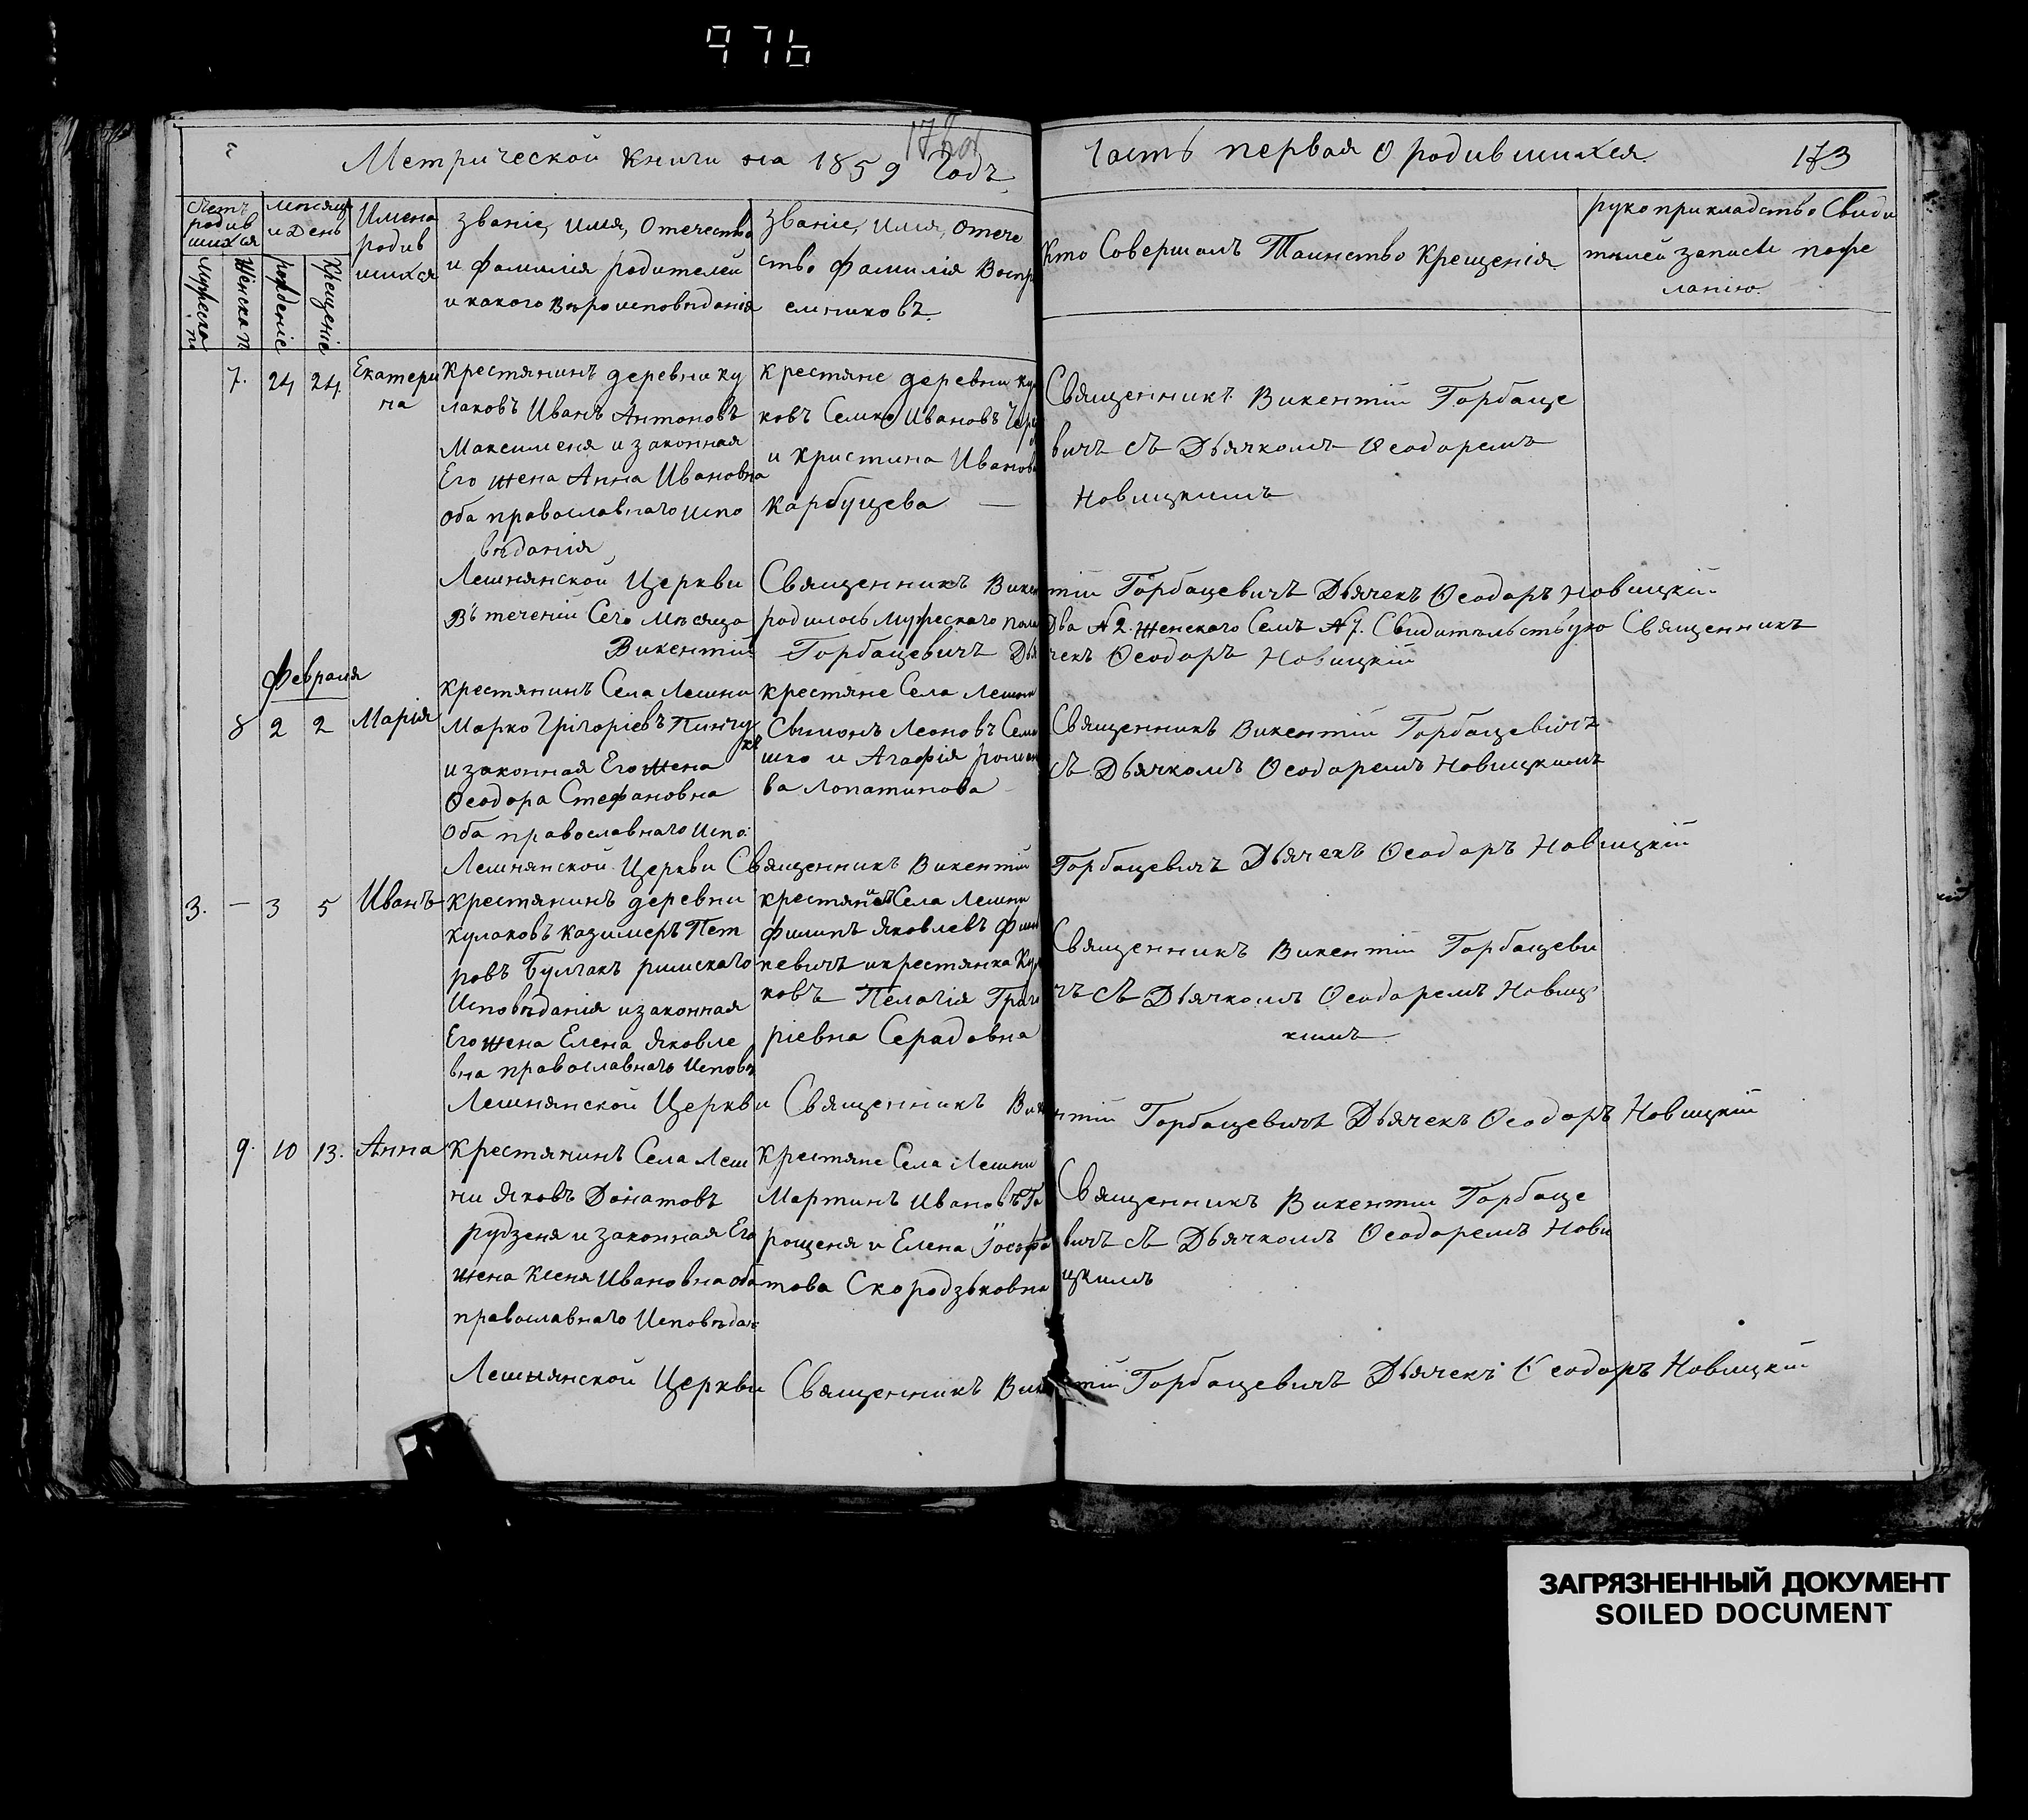 976
Метрической книги на 1859 Годъ
Часть первая о родившихся
173
Счетъ родив шихся
мѣсяцъ и день
Имена родив шихся
Званіе, имя, отечество и фамилія родителей и какого вѣроисповѣданія
Званіе, имя, отече ство фамилія Воспр емниковъ
Кто Совершалъ Таинство Крещенія
рукоприкладство Свиди телей записи по же ланію
Мужеска п.
Женска п
рожденіе
Крещеніе
7. 24 24 Екатери на
Крестянинъ деревни Ку
лаковъ Иванъ Антоновъ
Максименя и законная
Его жена Анна Ивановна
Оба православнаго испо
вѣданія
Крестяне деревни Ку
ковъ Семко Ивановъ
и Христина Иванов
Карбущева —
Священникъ Викентій Горбаце
вичъ съ Дьячкомъ Ѳеодоремъ
Новицкимъ
Лешнянской Церкви Священникъ Викентій Горбацевичъ Дьячекъ Ѳеодоръ Новицкій
Въ теченіи Сего Мѣсяца родилось мужескаго пола Два №2. Женскаго Семь №7. Свидительствую Священникъ
Викентій Горбацевичъ Дьячекъ Ѳеодоръ Новицкій
Февраля
8 2 2 Марія
Крестянинъ Села Лешни
Марко Григоріевъ Пинчу
къ
и законная Его жена
Ѳеодора Стефановна
Оба православнаго испо:
Крестяне Села Лешни
Сымонъ Леоновъ Сем
шко и Агафія роман
ва Лопатинова
Священникъ Викентій Горбацевичъ
съ Дьячкомъ Ѳеодоремъ Новицкимъ
Лешнянской Церкви Священникъ Викентій Горбацевичъ Дьячекъ Ѳеодоръ Новицкій
3. — 3 5 Иванъ
Крестянинъ деревни
Кулаковъ Казимеръ Пет
ровъ Булгакъ римскаго
Исповѣданія и законная
Его жена Елена Яковле
вна православнаго Исповѣ
крестянинъ Села Лешни
Филипъ Яковлевъ Фи
кевичъ и крестянка Ку
ковъ Пелагія Григо
ріевна Серадовна
Священникъ Викентій Горбацеви
чъ съ Дьячкомъ Ѳеодоремъ Новиц
кимъ
Лешнянской Церкви Священникъ Викентій Горбацевичъ Дьячекъ Ѳеодоръ Новицкій
9. 10 13. Анна
Крестянинъ Села Леш
ни Яковъ Донатовъ
рудзеня и законная Его
жена Ксеня Ивановна оба
православнаго Исповѣдан
Крестяне Села Лешни
Мартинъ Ивановъ Го
рощеня и Елена Іосафа
това Скородзьковна
Священникъ Викентій Горбаце
вичъ съ Дьячкомъ Ѳеодоремъ Нови
цкимъ
Лешнянской Церкви Священникъ Викентій Горбацевичъ Дьячекъ Ѳеодоръ Новицкій
ЗАГРЯЗНЕННЫЙ ДОКУМЕНТ
SOILED DOCUMENT